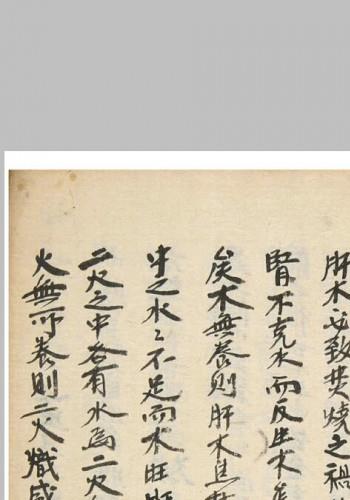 肝木必致焚燒之禍
腎不克水而反生木
矣木無養則肝木焦
中之水〻不足而木旺
二火之中各有水為二火
火無所養則二火熾盛